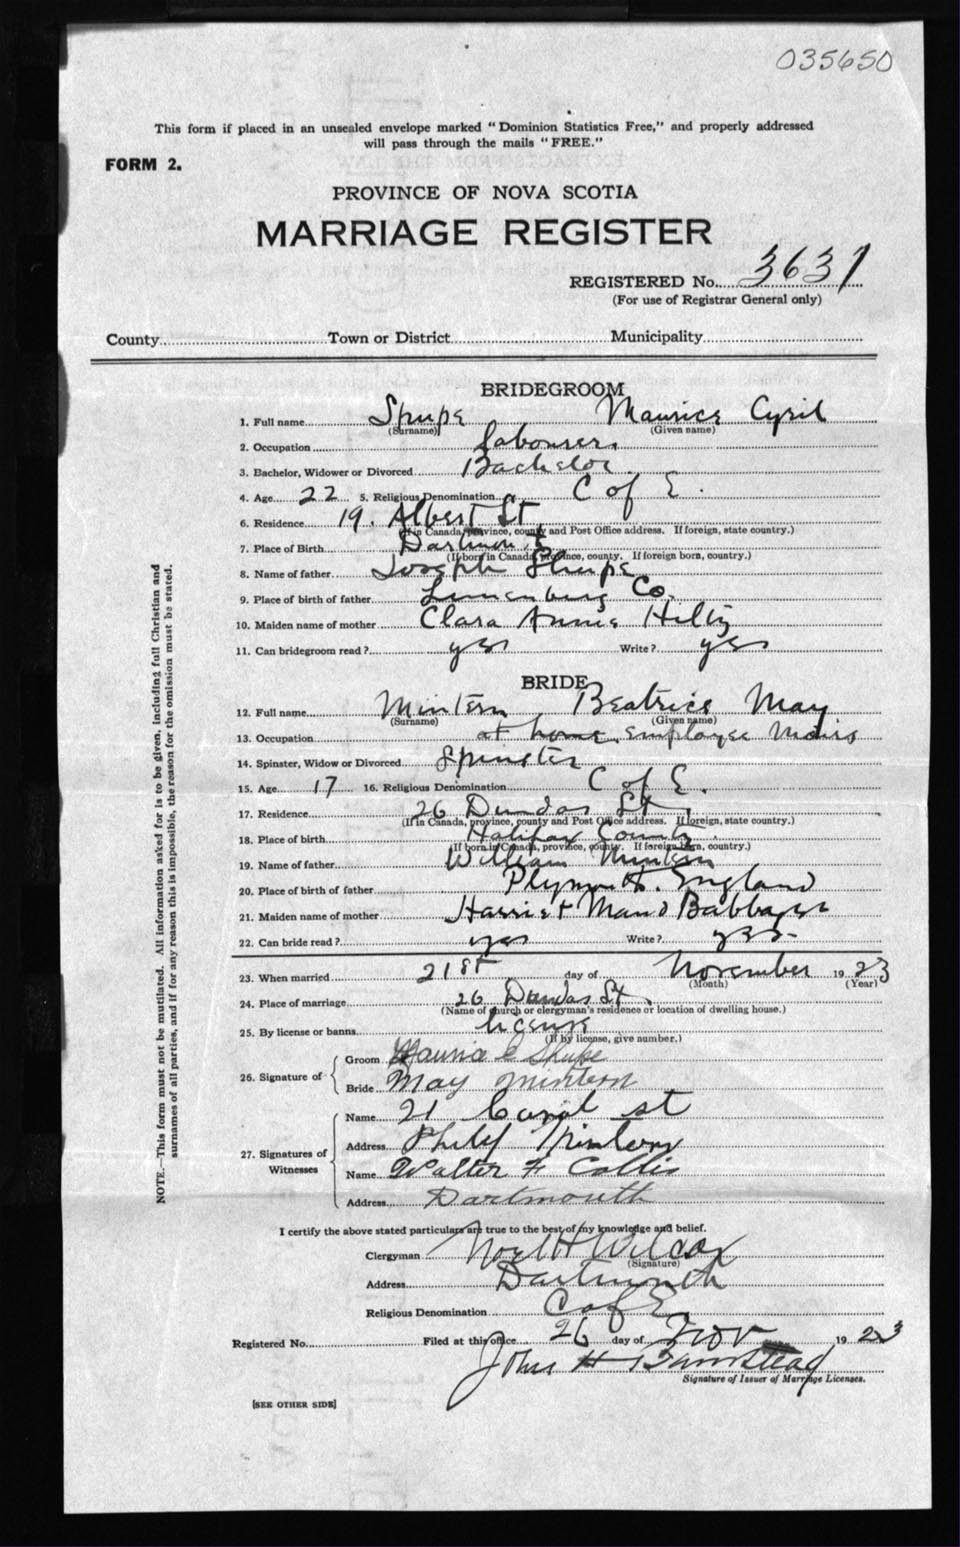 035650
This form if placed in an unsealed envelope marked "Dominion Statistics Free," and properly addressed
will pass through the mails "FREE."
FORM 2.
PROVINCE OF NOVA SCOTIA
MARRIAGE REGISTER
REGISTERED No. 3631
(For use of Registrar General only)
County Town or District Municipality
BRIDEGROOM
1. Full name Shupe Maurice Cyril
(Surname) (Given name)
2. Occupation Labourer
3. Bachelor, Widower or Divorced Bachelor
4. Age 22 5. Religious Denomination C of E.
6. Residence 19. Albert St
(If in Canada, province, county and Post Office address. If foreign, state country.)
7. Place of Birth Dartmouth
(If born in Canada, province, county. If foreign born, country.)
8. Name of father Joseph Shupe
9. Place of birth of father Lunenburg Co.
10. Maiden name of mother Clara Annie Hiltz
11. Can bridegroom read? yes Write? yes
BRIDE
12. Full name Mintern Beatrice May
(Surname) (Given name)
13. Occupation at home employee Moirs
14. Spinster, Widow or Divorced Spinster
15. Age 17 16. Religious Denomination C of E.
17. Residence 26 Dundas St
(If in Canada, province, county and Post Office address. If foreign, state country.)
18. Place of birth Halifax County
(If born in Canada, province, county. If foreign born, country.)
19. Name of father William Mintern
20. Place of birth of father Plymouth. England
21. Maiden name of mother Harriet Maud Babbage
22. Can bride read? yes Write? yes
23. When married 21st day of November 1923
(Month) (Year)
24. Place of marriage 26 Dundas St
(Name of church or clergyman's residence or location of dwelling house.)
25. By license or banns license
(If by license, give number.)
26. Signature of
Groom Maurice C Shupe
Bride May Mintern
27. Signatures of Witnesses
Name 21 Canal st
Address Mintern
Name Walter F Collis
Address Dartmouth
I certify the above stated particulars are true to the best of my knowledge and belief.
Clergyman Noel H Wilcox
(Signature)
Address Dartmouth
Religious Denomination C of E
Registered No. Filed at this office 26 day of Nov 1923
John H
Signature of Issuer of Marriage Licenses.
[SEE OTHER SIDE]
NOTE.—This form must not be mutilated. All information asked for is to be given, including full Christian and
surnames of all parties, and if for any reason this is impossible, the reason for the omission must be stated.